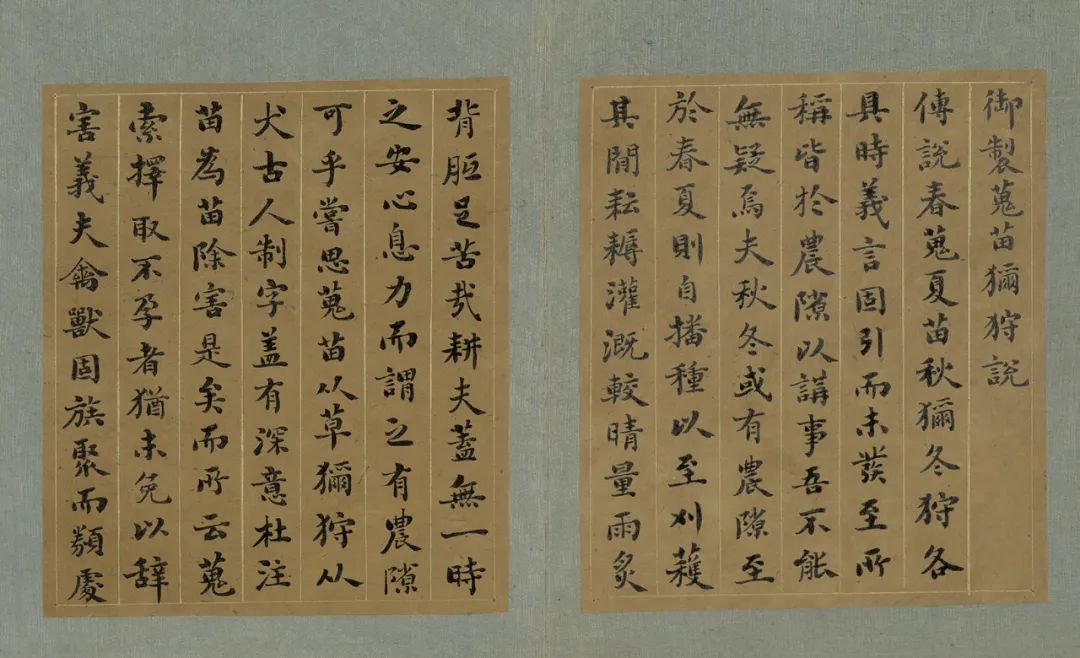 御製蒐苗獮狩說
傳說春蒐夏苗秋獮冬狩各
具時義言固引而未發至所
稱皆於農隙以講事吾不能
無疑焉夫秋冬或有農隙至
於春夏則自播種以至刈穫
其間耘耨灌溉較晴量雨炙
背胝足苦哉耕夫蓋無一時
之安心息力而謂之有農隙
可乎嘗思蒐苗从草獮狩从
犬古人制字盖有深意杜注
苗為苗除害是矣而所云蒐
索擇取不孕者猶未免以辭
害義夫禽獸固族聚而類處